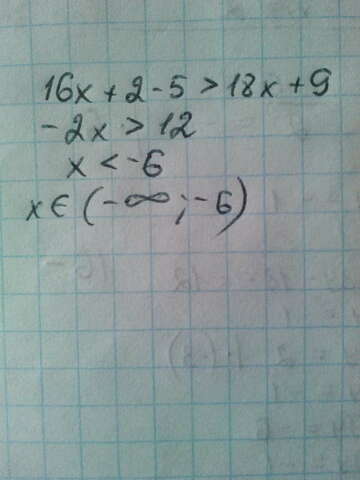 16x + 2 - 5 > 18x + 9
- 2x > 12
x < -6
x ∈ (-∞ ; -6)